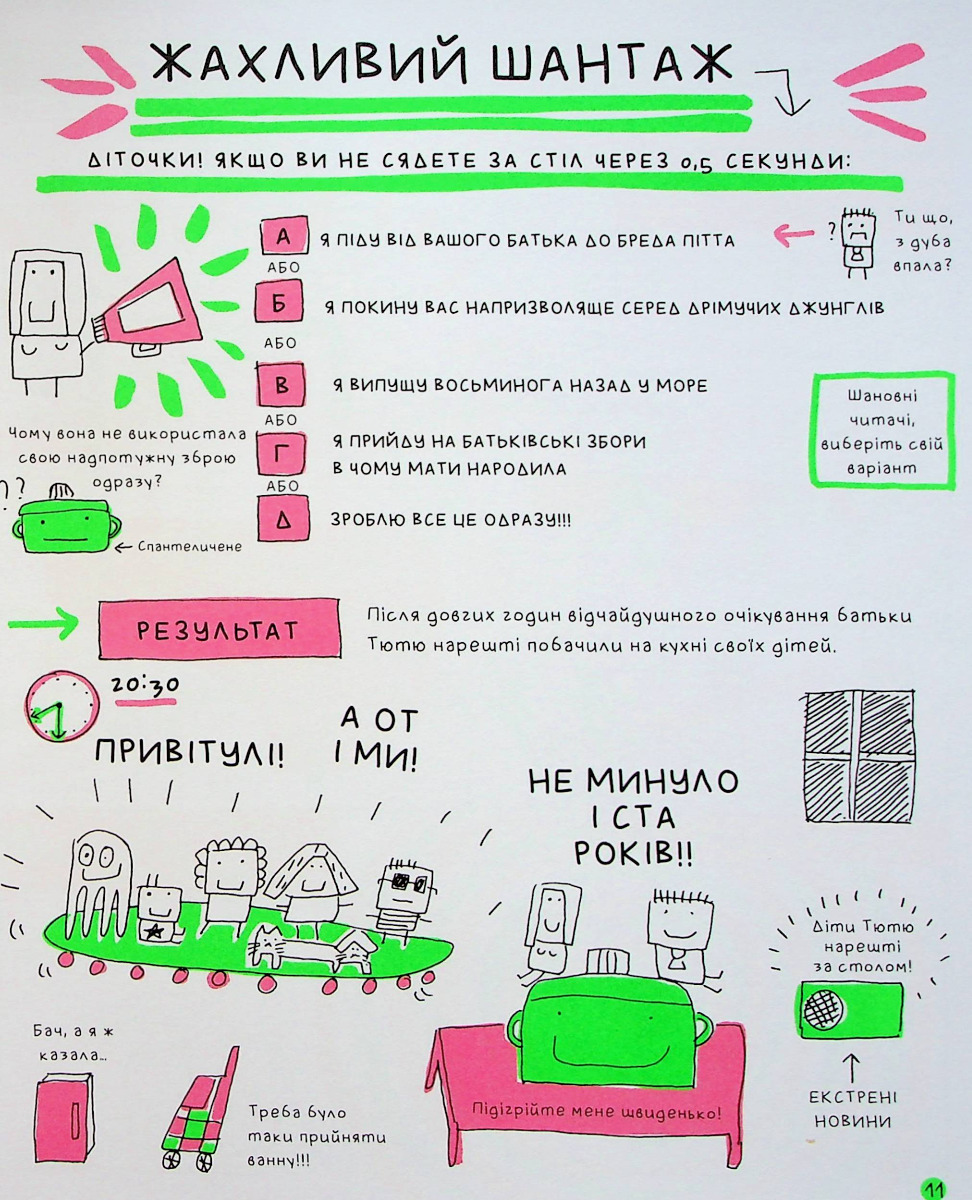 ЖАХЛИВИЙ ШАНТАЖ
ДІТОЧКИ! ЯКЩО ВИ НЕ СЯДЕТЕ ЗА СТІЛ ЧЕРЕЗ 0,5 СЕКУНДИ:
А
Я ПІДУ ВІД ВАШОГО БАТЬКА ДО БРЕДА ПІТТА
?
Ти що,
з дуба
впала?
АБО
Б
Я ПОКИНУ ВАС НАПРИЗВОЛЯЩЕ СЕРЕД ДРІМУЧИХ ДЖУНГЛІВ
АБО
В
Я ВИПУЩУ ВОСЬМИНОГА НАЗАД У МОРЕ
АБО
Г
Я ПРИЙДУ НА БАТЬКІВСЬКІ ЗБОРИ
В ЧОМУ МАТИ НАРОДИЛА
АБО
Д
ЗРОБЛЮ ВСЕ ЦЕ ОДРАЗУ!!!
Шановні
читачі,
виберіть свій
варіант
Чому вона не використала
свою надпотужну зброю
одразу?
??
Спантеличене
РЕЗУЛЬТАТ
Після довгих годин відчайдушного очікування батьки
Тютю нарешті побачили на кухні своїх дітей.
20:30
ПРИВІТУЛІ!
А ОТ
І МИ!
НЕ МИНУЛО
І СТА
РОКІВ!!
Діти Тютю
нарешті
за столом!
ЕКСТРЕНІ
НОВИНИ
Бач, а я ж
казала...
Треба було
таки прийняти
ванну!!!
Підігрійте мене швиденько!
11